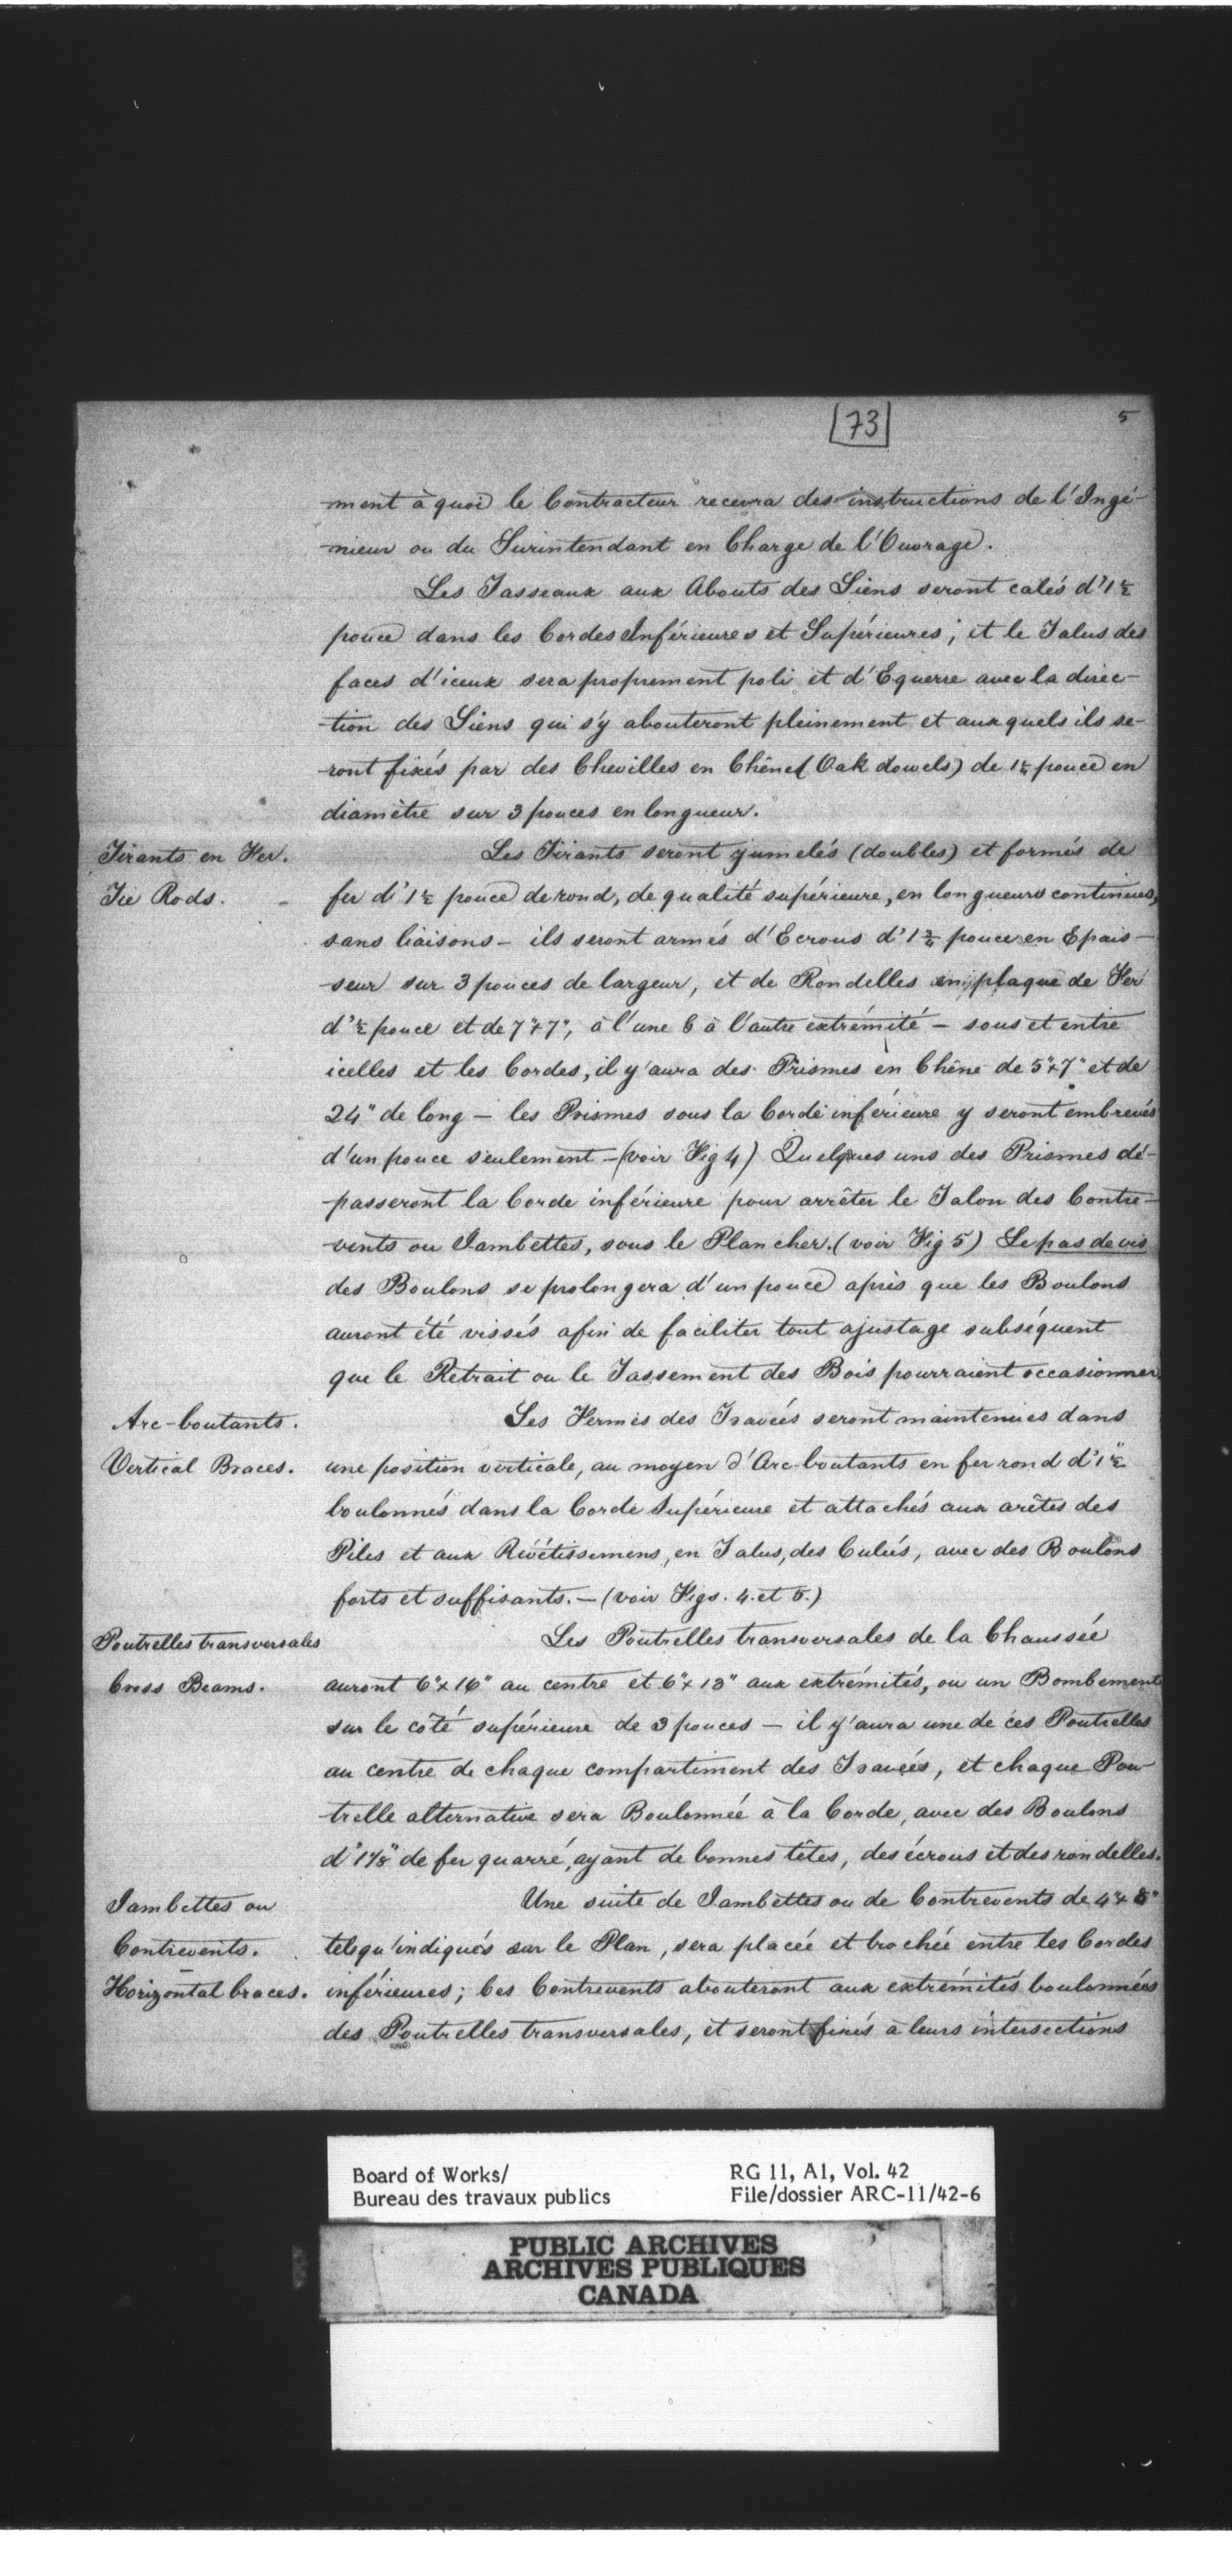 73
5
-ment à quoi le Contracteur recevra des instructions de l'Ingé-
-nieur ou du Surintendant en Charge de l'Ouvrage.
Les Tasseaux aux Abouts des Liens seront calés d'1½
pouce dans les Cordes Inférieures et Supérieures; et le Talus des
faces d'iceux sera proprement poli et d'Equerre avec la direc-
-tion des Liens qui s'y abouteront pleinement et auxquels ils se-
-ront fixés par des Chevilles en Chêne (Oak dowels) de 1¼ pouce en
diamètre sur 3 pouces en longueur.
Tirants en Fer.
Tie Rods.
Les Tirants seront jumelés (doubles) et formés de
fer d'1½ pouce de rond, de qualité supérieure, en longueurs continues,
sans liaisons - ils seront armés d'Ecrous d'1¾ pouce en Epais-
-seur sur 3 pouces de largeur, et de Rondelles en plaque de Fer
d'½ pouce et de 7"x7", à l'une & à l'autre extrémité - sous et entre
icelles et les Cordes, il y'aura des Prismes en Chêne de 5"x7" et de
24" de long - les Prismes sous la Corde inférieure y seront embrevés
d'un pouce seulement - (voir Fig 4) Quelques uns des Prismes dé-
-passeront la Corde inférieure pour arrêter le Talon des Contre-
-vents ou Jambettes, sous le Plancher. (voir Fig 5) Le pas de vis
des Boulons se prolongera d'un pouce après que les Boulons
auront été vissés afin de faciliter tout ajustage subséquent
que le Retrait ou le Tassement des Bois pourraient occasionner.
Arc-boutants.
Vertical Braces.
Les Fermes des Travées seront maintenues dans
une position verticale, au moyen d'Arc-boutants en fer rond d'1½"
boulonnés dans la Corde Supérieure et attachés aux arêtes des
Piles et aux Revétissemens, en Talus, des Culées, avec des Boulons
forts et suffisants. - (voir Figs. 4. et 5.)
Poutrelles transversales
Cross Beams.
Les Poutrelles transversales de la Chaussée
auront 6"x16" au centre et 6"x13" aux extrémités, ou un Bombement
sur le côté supérieure de 3 pouces - il y'aura une de ces Poutrelles
au centre de chaque compartiment des Travées, et chaque Pou-
-trelle alternative sera Boulonnée à la Corde, avec des Boulons
d'1⅛" de fer quarré, ayant de bonnes têtes, des écrous et des rondelles.
Jambettes ou
Contrevents.
Horizontal braces.
Une suite de Jambettes ou de Contrevents de 4"x8"
tels qu'indiqués sur le Plan, sera placée et brochée entre les Cordes
inférieures; Ces Contrevents abouteront aux extrémités boulonnées
des Poutrelles transversales, et seront fixés à leurs intersections
Board of Works/
Bureau des travaux publics
RG 11, A1, Vol. 42
File/dossier ARC-11/42-6
PUBLIC ARCHIVES
ARCHIVES PUBLIQUES
CANADA